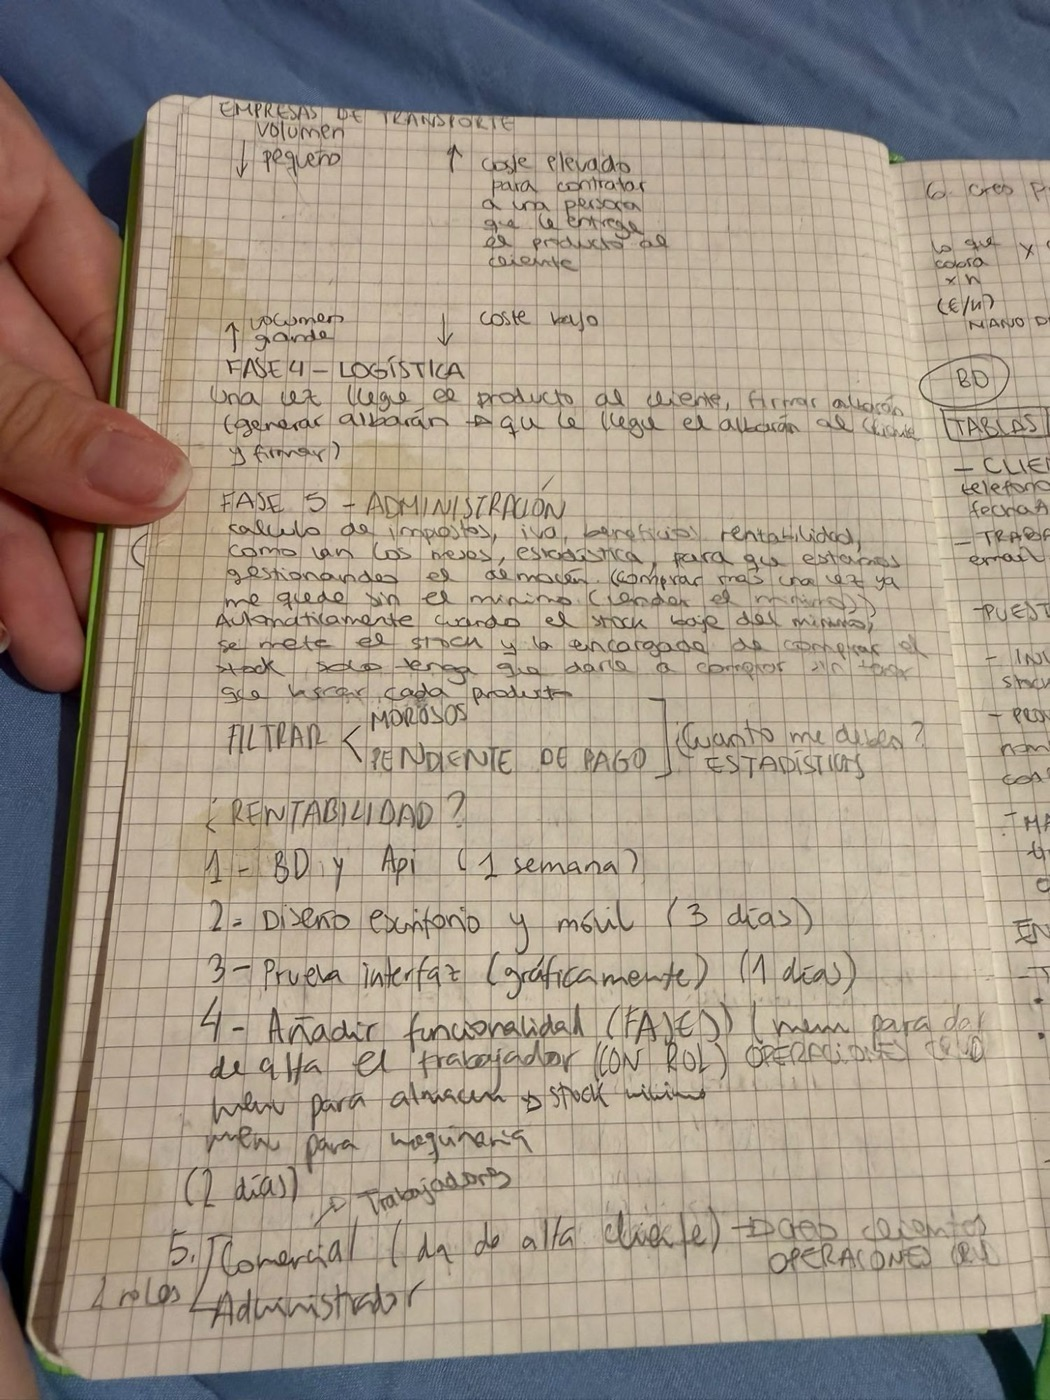 EMPRESAS DE TRANSPORTE
volumen
↓ pequeño
↑ coste elevado
para contratar
a una persona
que le entregue
el producto al
cliente
↑ volumen
grande
↓ coste bajo
FASE 4 - LOGÍSTICA
Una vez llege el producto al cliente, firmar albarán
(generar albarán → qu le llegue el albarán al cliente
y firmar)
FASE 5 - ADMINISTRACIÓN
calculo de impostos, iva, beneficios rentabilidad,
como van los meses, estadística, para que estamos
gestionando el almacén (comprar mas una vez ya
me quede sin el minimo (vender el minimo))
Automáticamente cuando el stock baje del minimo,
se mete el stock y la encargada de comprar el
stock solo tenga que darle a comprar sin tener
que buscar cada producto
FILTRAR < MOROSOS
PENDIENTE DE PAGO ] Cuanto me deben?
ESTADÍSTICAS
¿RENTABILIDAD?
1 - BD y Api (1 semana)
2 - Diseño escritorio y móvil (3 días)
3 - Prueba interfaz (gráficamente) (1 días)
4 - Añadir funcionalidad (FASES) (menu para dar
de alta el trabajador (CON ROL) OPERACIONES CRUD
menu para almacen → stock minimo
menu para maquinaria
(2 días)
→ Trabajadores
5. Comercial (da de alta cliente) → cleientes
OPERACIONES
2 roles
Administrador
6
lo que x
cobra
x h
(€/h)
MANO D
BD
TABLAS
- CLIE
telefono
fecha A
- TRABA
email
- PUEST
- IN
stoc
- PRO
nom
cos
- MA
EN